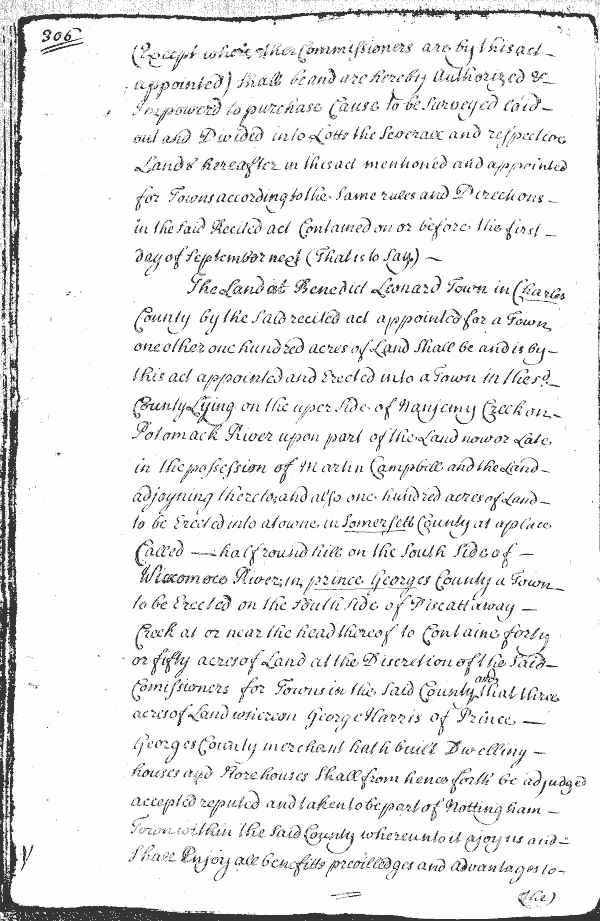 306
(Except where other Commissioners are by this act
appointed) Shall be and are hereby Authorized &
Impowerd to purchase Cause to be Surveyed laid
out and Divided into Lotts the Severall and respective
Lands hereafter in this act mentioned and appointed
for Towns according to the Same rules and Directions
in the Said Recited act Contained on or before the first
day of September next (That is to Say)
The Land at Benedict Leonard Town in Charles
County by the Said recited act appointed for a Town
one other one hundred acres of Land Shall be and is by
this act appointed and Erected into a Town in the sd.
County Lying on the uper Side of Nanjemy Creek on
Potomack River upon part of the Land now or Late
in the possession of Martin Campbell and the Land
adjoyning thereto, and also one hundred acres of Land
to be Erected into a towne in Somersett County at a place
Called — half round hill on the South Side of
Wiccomoco River, in prince Georges County a Town
to be Erected on the South Side of Piscattaway
Creek at or near the head thereof to Containe forty
or fifty acres of Land at the Discretion of the Said
Comissioners for Towns in the Said County and that three
acres of Land whereon George Harris of Prince
Georges County merchant hath built Dwelling
houses and Storehouses Shall from henceforth be adjudged
accepted reputed and taken to be part of Nottingham
Town within the Said County whereunto it ajoyns and
Shall Enjoy all benefitts previlledges and advantages to
(the)